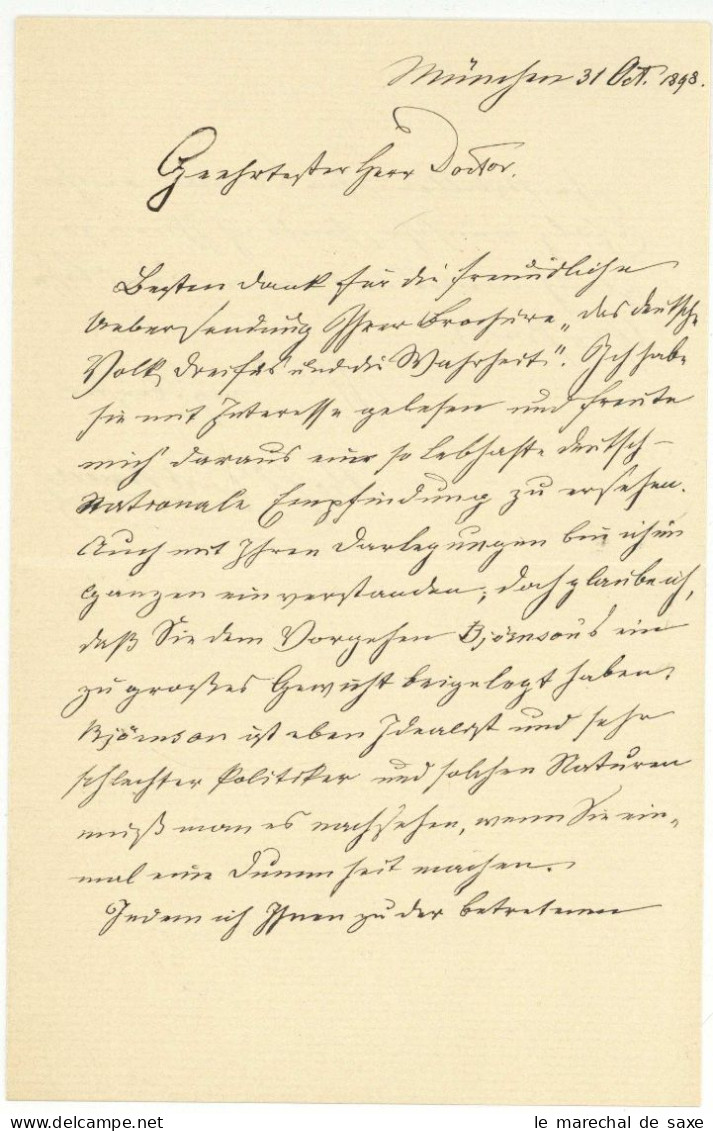 München 31 Oct. 1898.
Geehrtester Herr Doctor.
Besten Dank für die freundliche
Uebersendung Ihrer Brochüre „das deutsche
Volk, Dreifus und die Wahrheit“. Ich habe
sie mit Interesse gelesen und freute
mich daraus eine so lebhafte deutsch-
nationale Empfindung zu ersehen.
Auch mit Ihren Darlegungen bin ich im
ganzen einverstanden; doch glaube ich,
daß Sie dem Vorgehen Björnsons ein
zu großes Gewicht beigelegt haben.
Björnson ist eben Idealist und sehr
schlechter Politiker und solchen Naturen
muß man es nachsehen, wenn Sie ein-
mal eine Dummheit machen.
Indem ich Ihnen zu der betretenen
le marechal de saxe